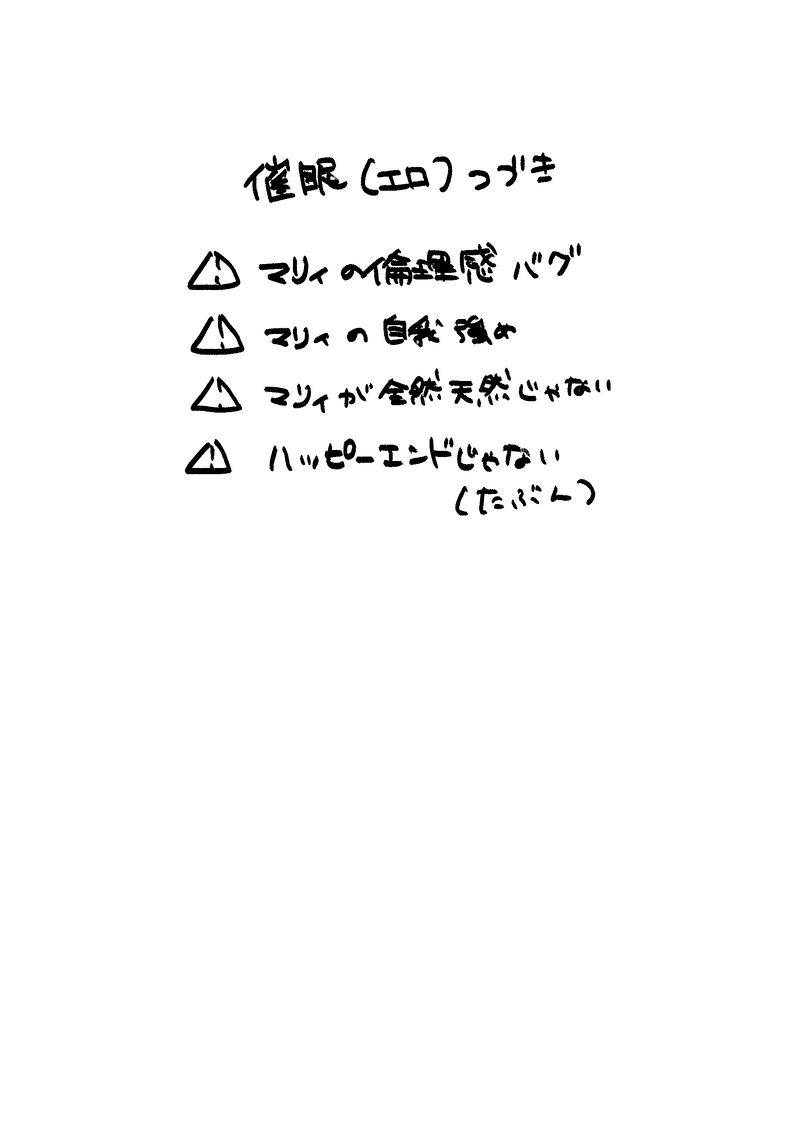 催眠(エロ)つづき
⚠ マリィの倫理感バグ
⚠ マリィの自我強め
⚠ マリィが全然天然じゃない
⚠ ハッピーエンドじゃない
(たぶん)